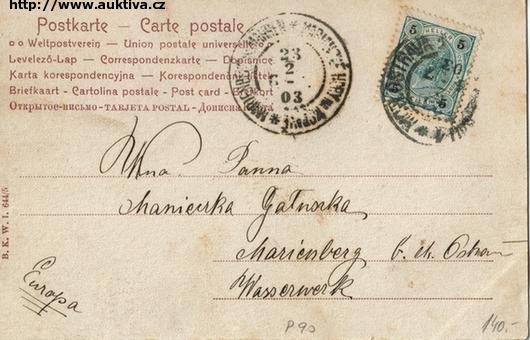 http://www.auktiva.cz
Postkarte — Carte postale
Weltpostverein — Union postale universelle
Levelező-Lap — Correspondenzkarte — Dopisnice
Karta korespondencyjna — Korespondenční lístek
Briefkart — Cartolina postale — Post card — Brefkort
Открытое-письмо — TARJETA POSTAL — Дописна
5 HELLER 5
23
2
03
Wna Panna
Manieczka
Marienberg b. M. Ostrau
Wasserwerk
Europa
B. K. W. I. 644/5
P90
140.-